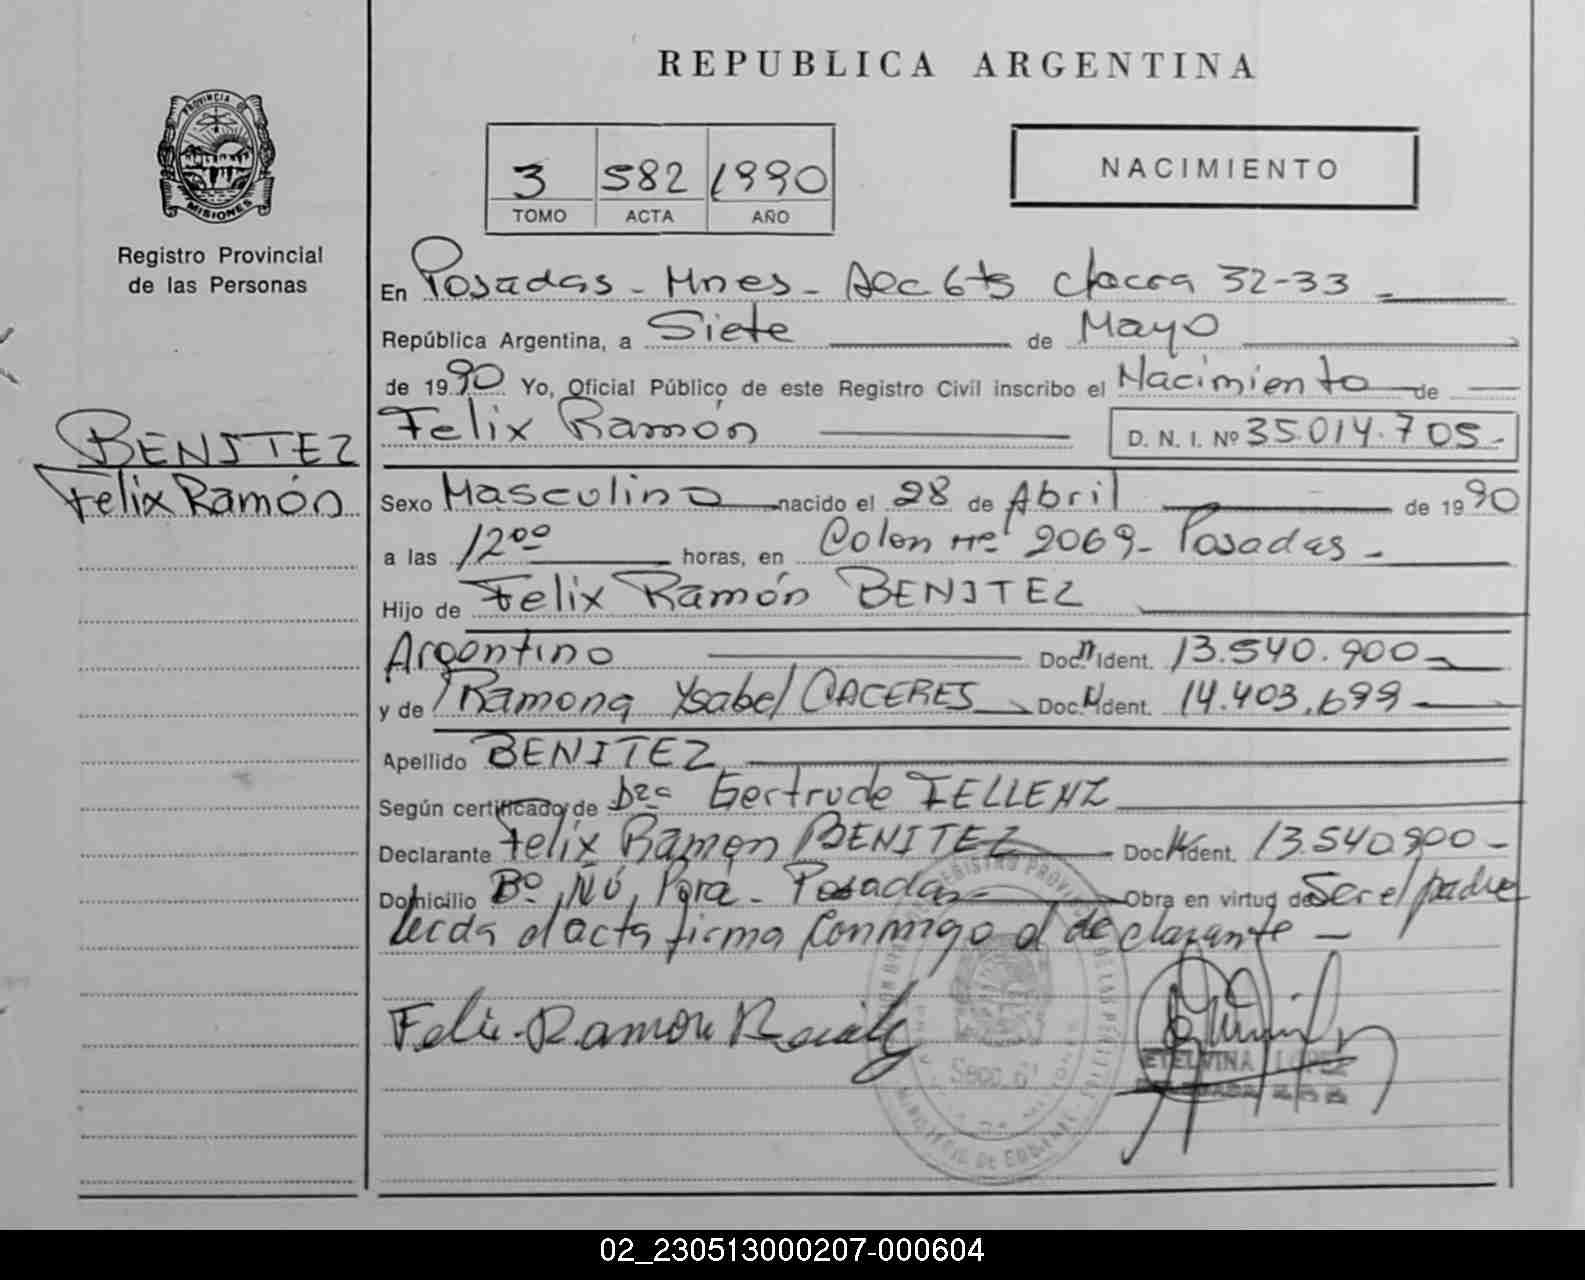 REPUBLICA ARGENTINA
PROVINCIA DE
MISIONES
Registro Provincial
de las Personas
3 582 1990
TOMO ACTA AÑO
NACIMIENTO
En Posadas - Mnes - Secc 6ta chacra 32-33
República Argentina, a Siete de Mayo
de 1990 Yo, Oficial Público de este Registro Civil inscribo el Nacimiento de
Felix Ramón D. N. I. Nº 35.014.705-
BENITEZ
Felix Ramón
Sexo Masculino nacido el 28 de Abril de 1990
a las 1200 horas, en Colon Nº 2069- Posadas -
Hijo de Felix Ramón BENITEZ
Argentino Doc. Ident. 13.540.900
y de Ramona Ysabel CACERES Doc. Ident. 14.403.699
Apellido BENITEZ
Según certificado de Dra Gertrude FELLENZ
Declarante Felix Ramon BENITEZ Doc. Ident. 13.540.900-
Domicilio Bº Ñú Porá - Posadas - Obra en virtud de Ser el padre
Leida el acta firma conmigo el declarante -
Felix Ramon
Secc. 6ª
ETELVINA LOPEZ
02_230513000207-000604